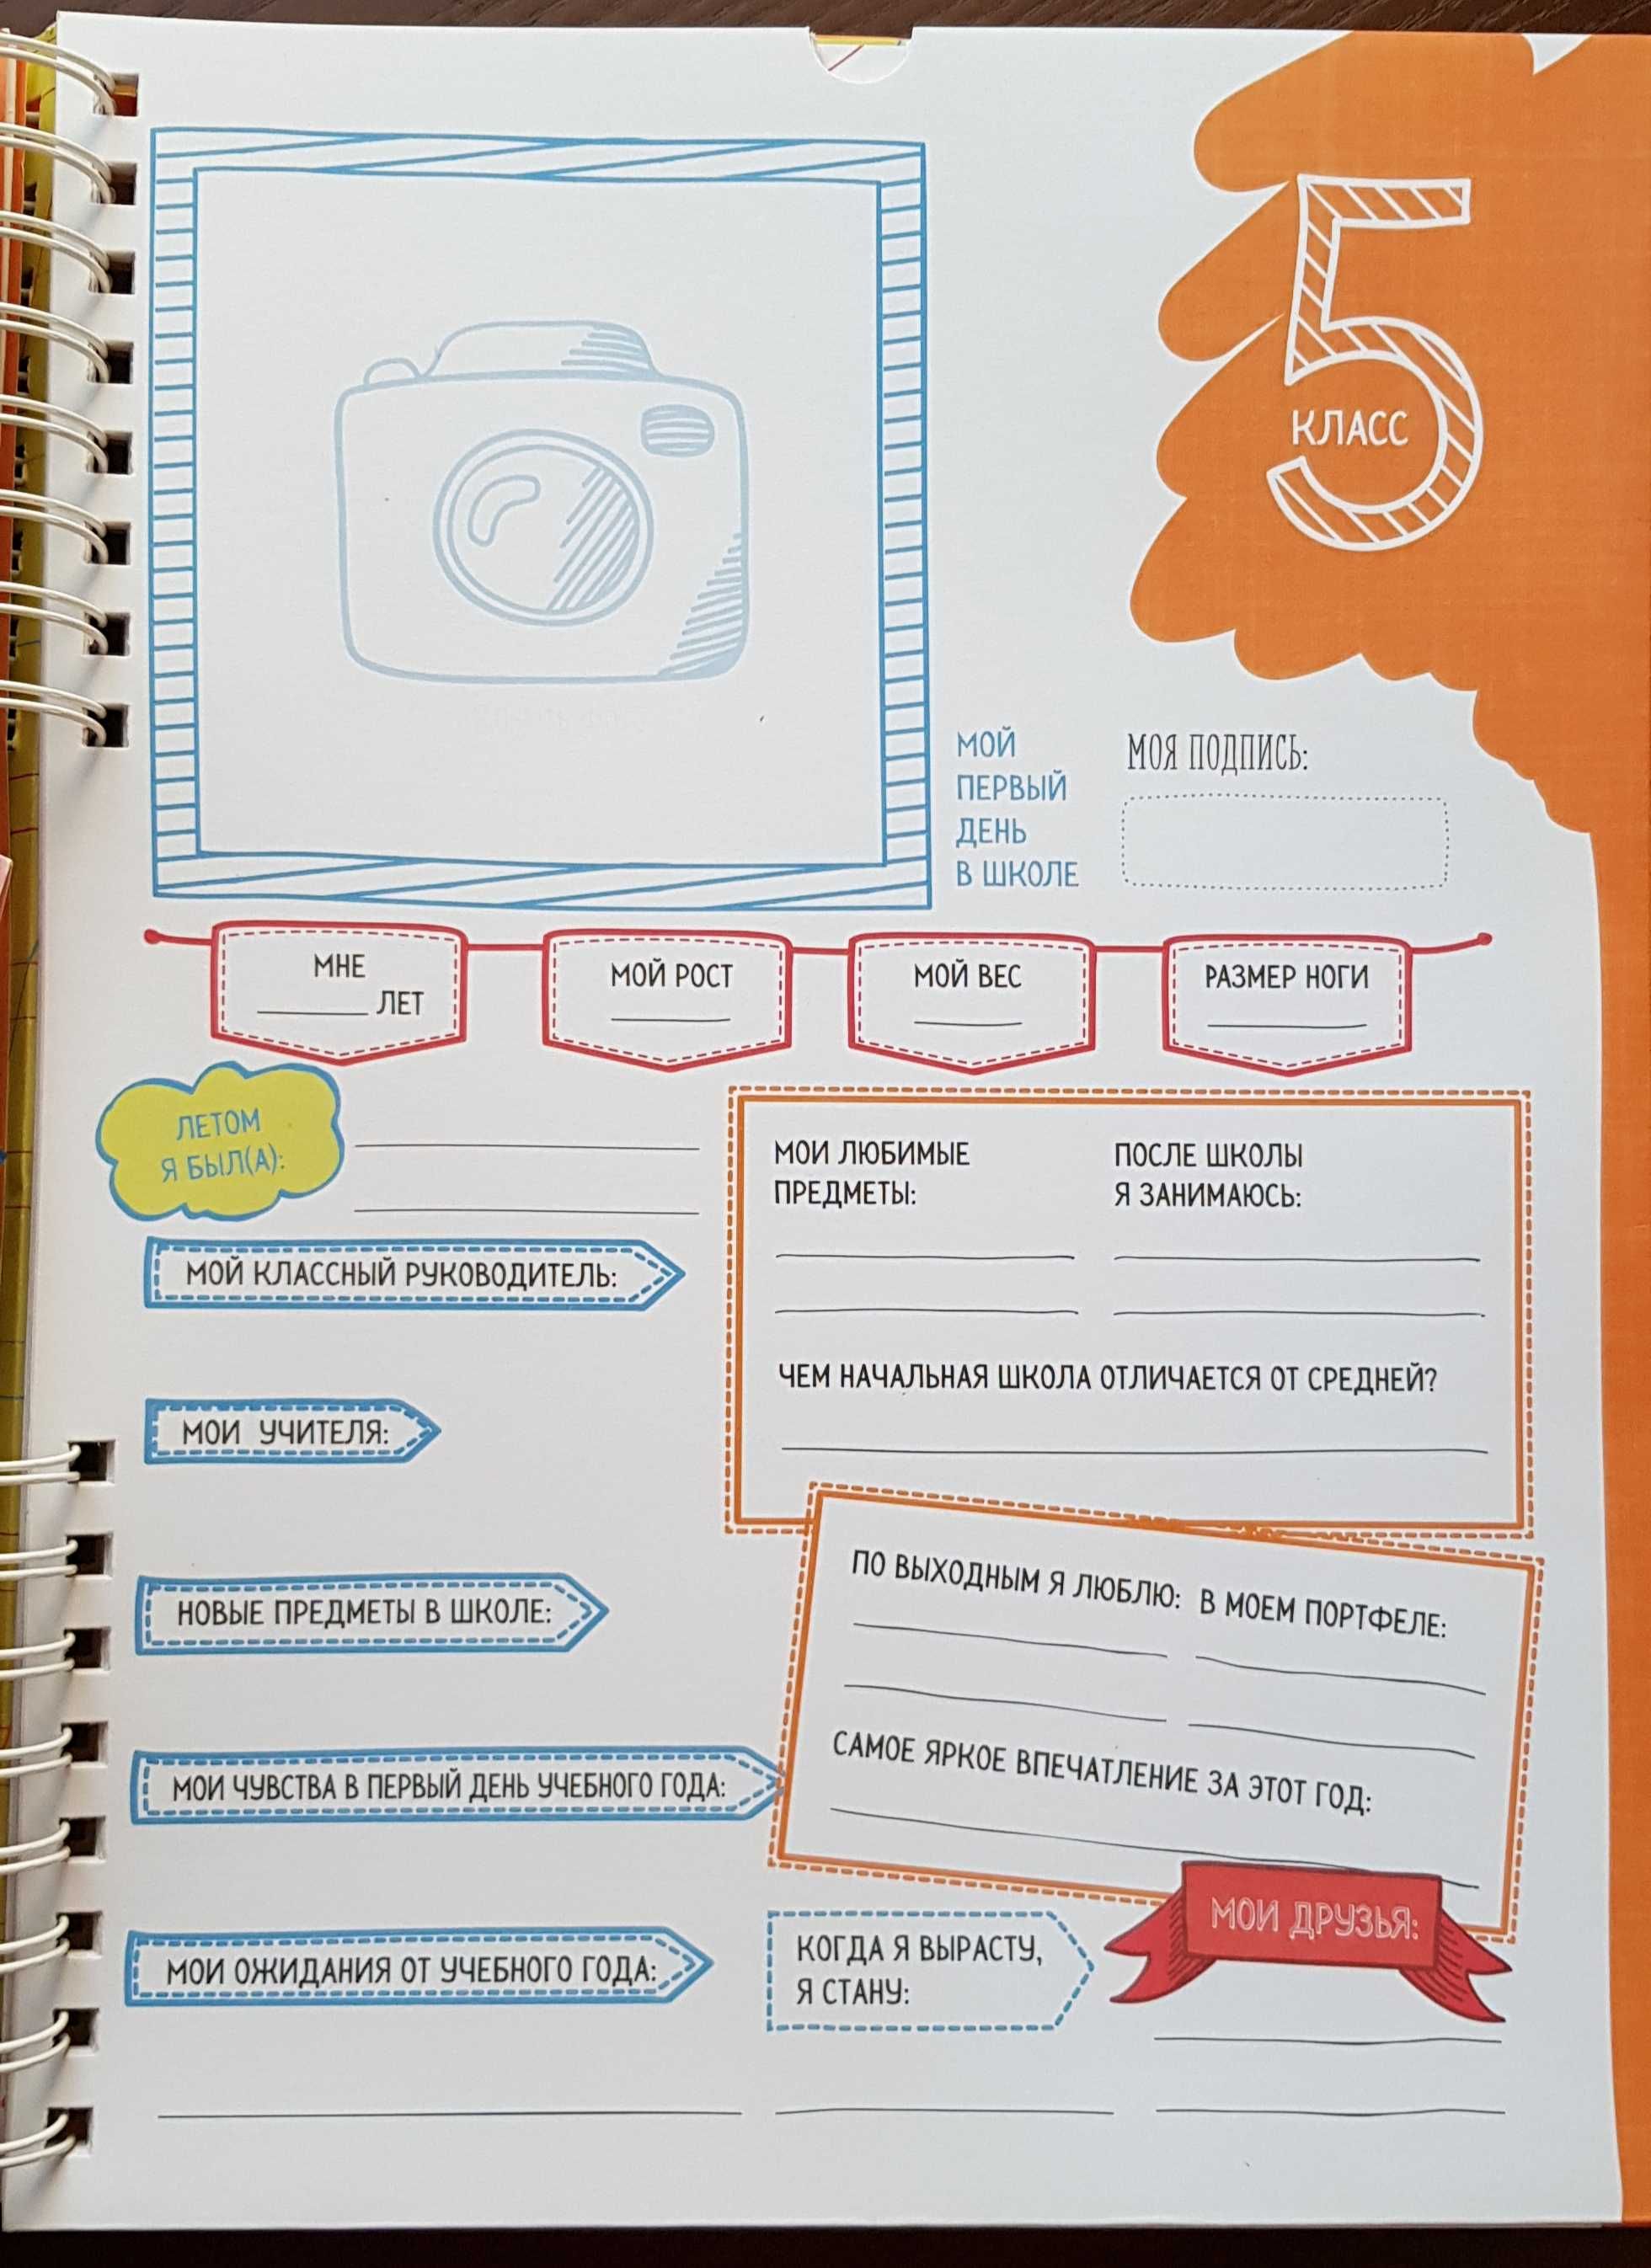 5
КЛАСС
МОЙ
ПЕРВЫЙ
ДЕНЬ
В ШКОЛЕ
МОЯ ПОДПИСЬ:
МНЕ
ЛЕТ
МОЙ РОСТ
МОЙ ВЕС
РАЗМЕР НОГИ
ЛЕТОМ
Я БЫЛ(А):
МОЙ КЛАССНЫЙ РУКОВОДИТЕЛЬ:
МОИ УЧИТЕЛЯ:
НОВЫЕ ПРЕДМЕТЫ В ШКОЛЕ:
МОИ ЧУВСТВА В ПЕРВЫЙ ДЕНЬ УЧЕБНОГО ГОДА:
МОИ ОЖИДАНИЯ ОТ УЧЕБНОГО ГОДА:
МОИ ЛЮБИМЫЕ
ПРЕДМЕТЫ:
ПОСЛЕ ШКОЛЫ
Я ЗАНИМАЮСЬ:
ЧЕМ НАЧАЛЬНАЯ ШКОЛА ОТЛИЧАЕТСЯ ОТ СРЕДНЕЙ?
ПО ВЫХОДНЫМ Я ЛЮБЛЮ:
В МОЕМ ПОРТФЕЛЕ:
САМОЕ ЯРКОЕ ВПЕЧАТЛЕНИЕ ЗА ЭТОТ ГОД:
КОГДА Я ВЫРАСТУ,
Я СТАНУ:
МОИ ДРУЗЬЯ: